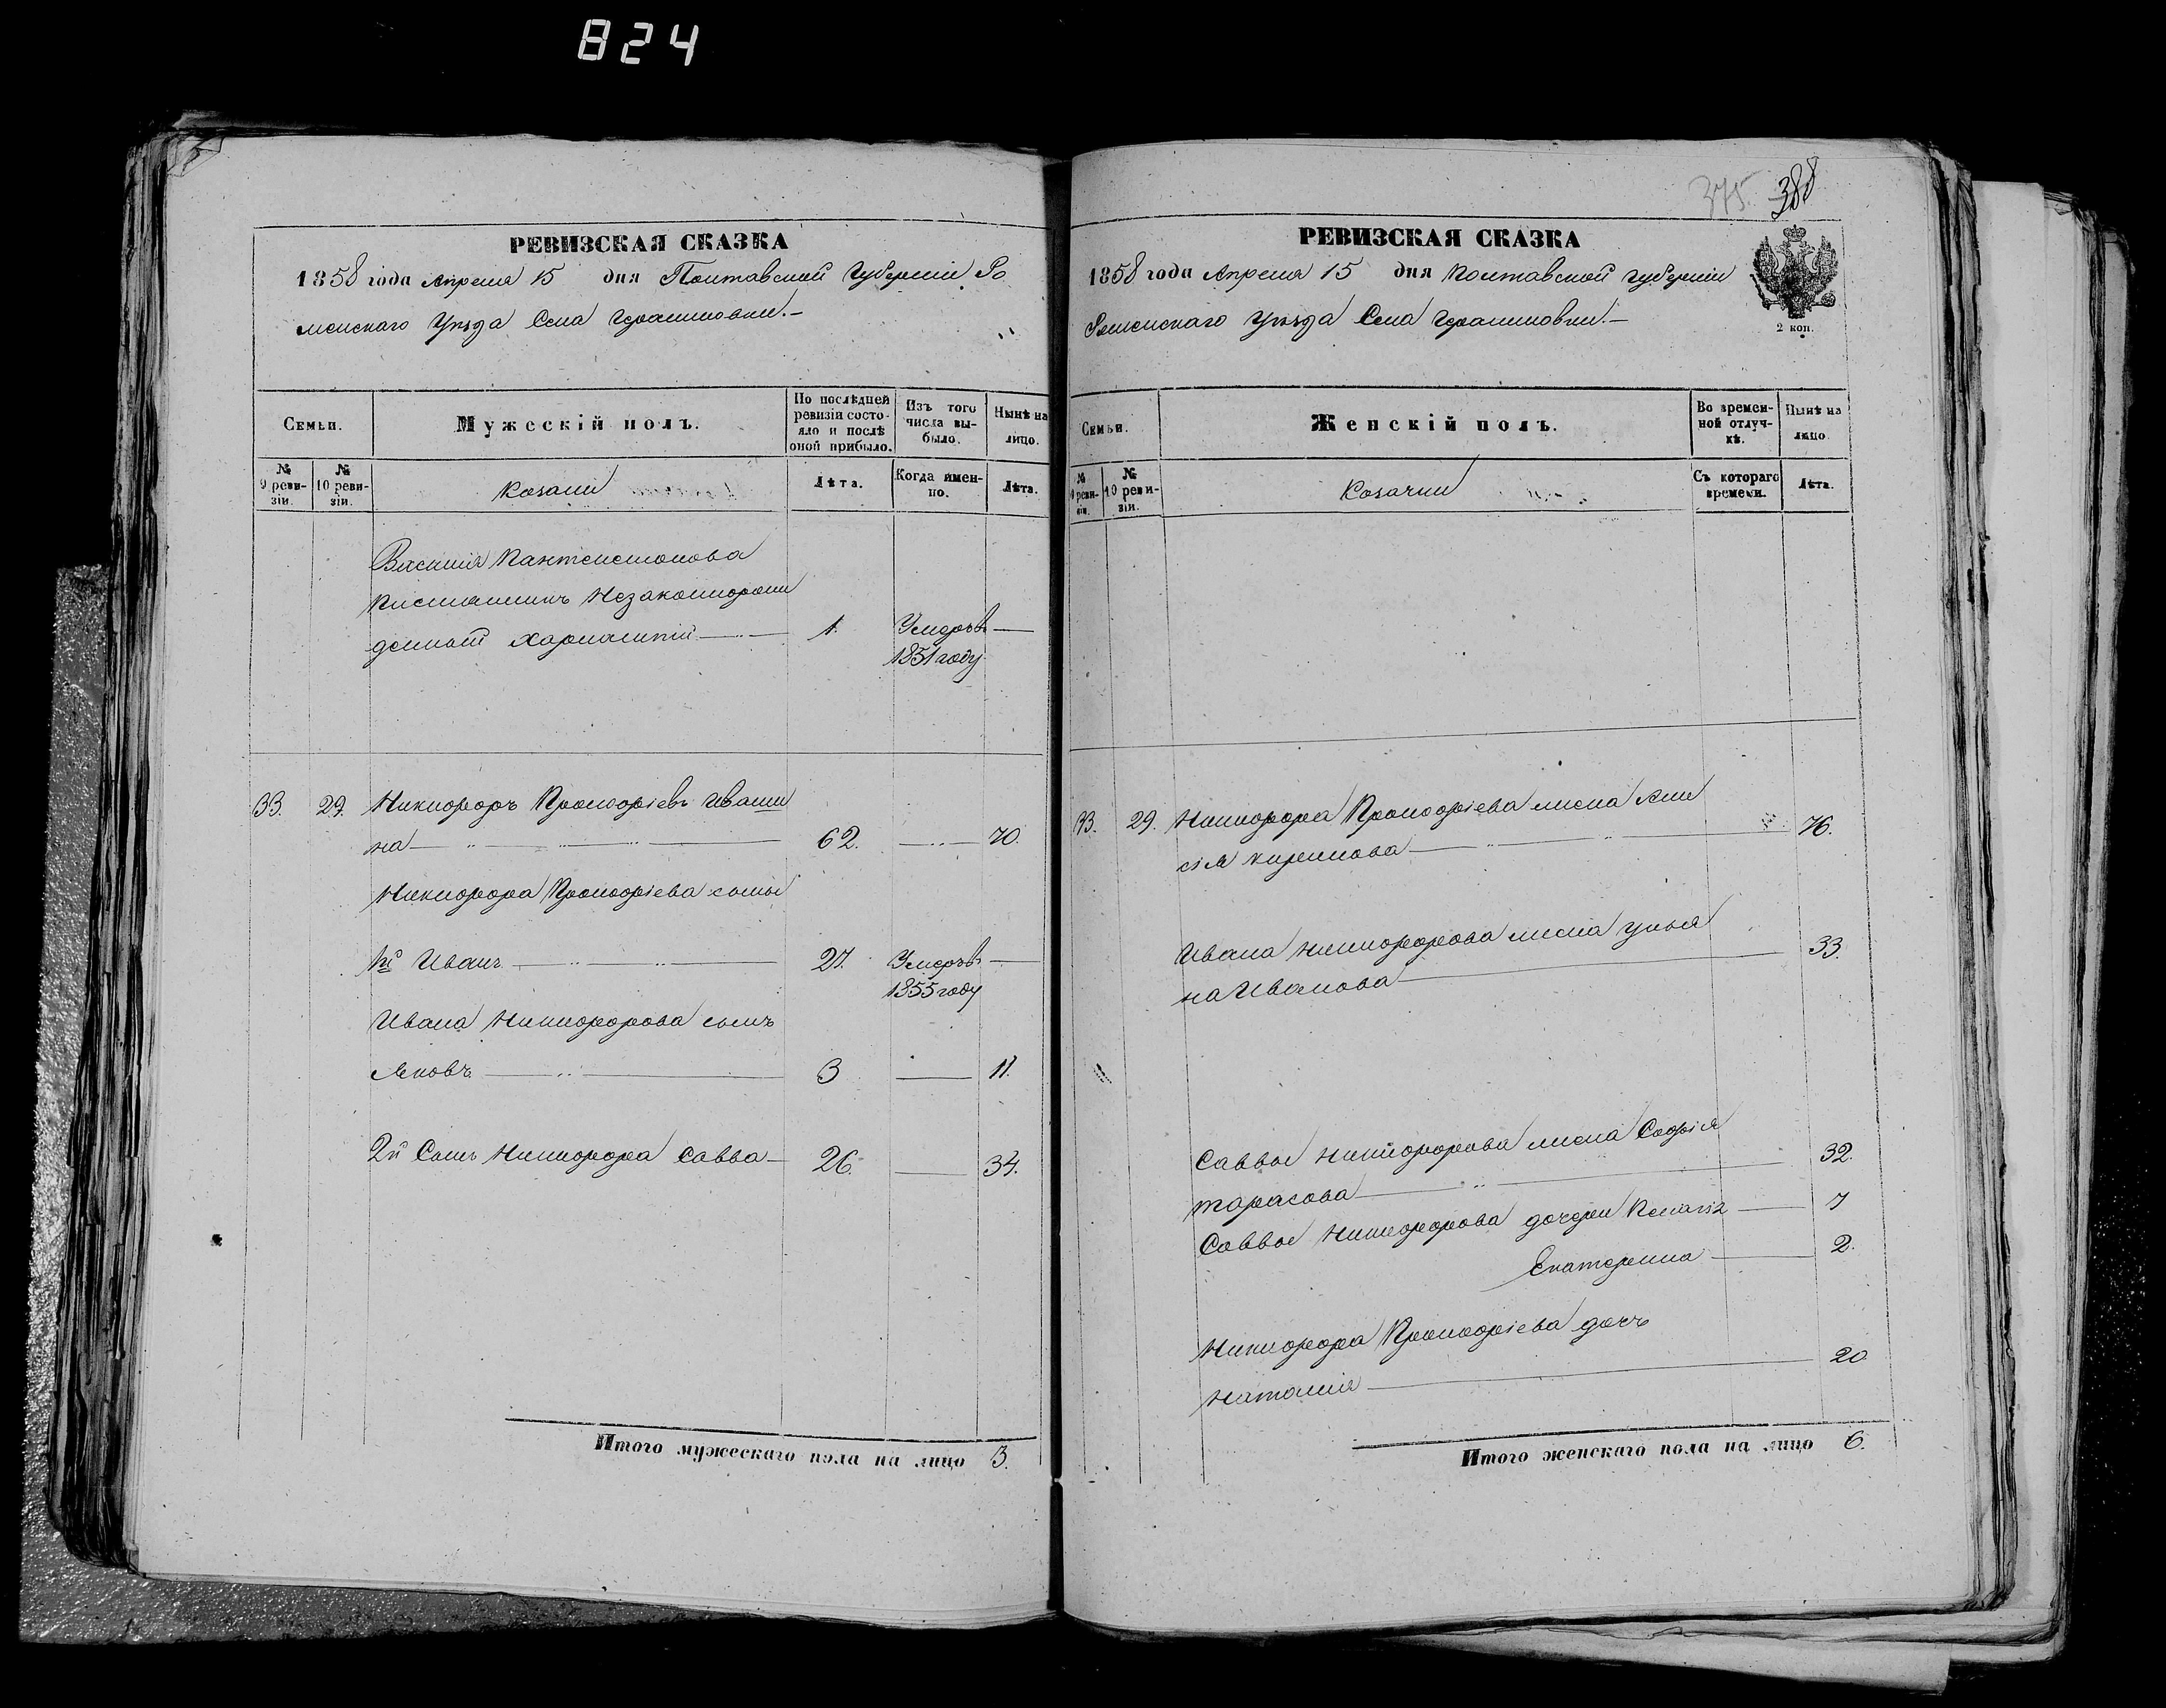 824
РЕВИЗСКАЯ СКАЗКА
1858 года Апреля 15 дня Полтавской Губернии Ро
менскаго Уѣзда Села Герасимовки.
Семьи.
Мужескій полъ.
По послѣдней ревизіи состояло и послѣ оной прибыло.
Изъ того числа выбыло.
Нынѣ на лицо.
№ 9 ревизіи.
№ 10 ревизіи.
Козаки
Лѣта.
Когда именно.
Лѣта.
Василія Пантелемонова
незаконнорож
денной 1. Умеръ в
1851 году
33. 29. Никифоръ Прокофіевъ Иваши
на 62. 70.
Никифора Прокофіева сыны
1й Иванъ 27. Умеръ в
1855 году
Ивана Никифорова сынъ
Яковъ 3 11.
2й Сынъ Никифора Савва 26. 34.
Итого мужескаго пола на лицо 3.
375. 388
РЕВИЗСКАЯ СКАЗКА
1858 года Апреля 15 дня Полтавской Губернии
Роменскаго Уѣзда Села Герасимовки.
2 коп.
Семьи.
Женскій полъ.
Во временной отлучкѣ.
Нынѣ на лицо.
№ 9 ревизіи.
№ 10 ревизіи.
Козачки
Съ котораго времени.
Лѣта.
33. 29. Никифора Прокофіева жена
Кирилова 76.
Ивана Никифорова жена Улья
на Иванова 33.
Саввы Никифорова жена Софія
Тарасова 32.
Саввы Никифорова дочери 7
Екатерина 2.
Никифора Прокофіева дочь
Наталія 20
Итого женскаго пола на лицо 6.